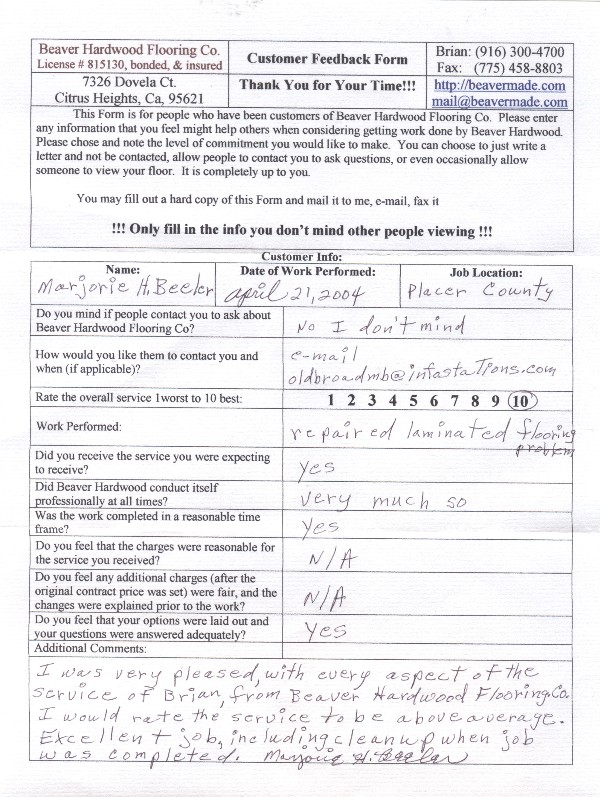 Beaver Hardwood Flooring Co.
License # 815130, bonded, & insured
Customer Feedback Form
Brian: (916) 300-4700
Fax: (775) 458-8803
7326 Dovela Ct.
Citrus Heights, Ca, 95621
Thank You for Your Time!!!
http://beavermade.com
mail@beavermade.com
This Form is for people who have been customers of Beaver Hardwood Flooring Co. Please enter
any information that you feel might help others when considering getting work done by Beaver Hardwood.
Please chose and note the level of commitment you would like to make. You can choose to just write a
letter and not be contacted, allow people to contact you to ask questions, or even occasionally allow
someone to view your floor. It is completely up to you.
You may fill out a hard copy of this Form and mail it to me, e-mail, fax it
!!! Only fill in the info you don't mind other people viewing !!!
Customer Info:
Name:
Marjorie H. Beeler
Date of Work Performed:
april 21, 2004
Job Location:
Placer County
Do you mind if people contact you to ask about
Beaver Hardwood Flooring Co?
No I don't mind
How would you like them to contact you and
when (if applicable)?
e-mail
oldbroadmb@infastations.com
Rate the overall service 1worst to 10 best:
1 2 3 4 5 6 7 8 9 10
Work Performed:
repaired laminated flooring
problem
Did you receive the service you were expecting
to receive?
yes
Did Beaver Hardwood conduct itself
professionally at all times?
very much so
Was the work completed in a reasonable time
frame?
yes
Do you feel that the charges were reasonable for
the service you received?
N/A
Do you feel any additional charges (after the
original contract price was set) were fair, and the
changes were explained prior to the work?
N/A
Do you feel that your options were laid out and
your questions were answered adequately?
Yes
Additional Comments:
I was very pleased, with every aspect of the
service of Brian, from Beaver Hardwood Flooring Co.
I would rate the service to be above average.
Excellent job, including cleanup when job
was completed. Marjorie H. Beeler